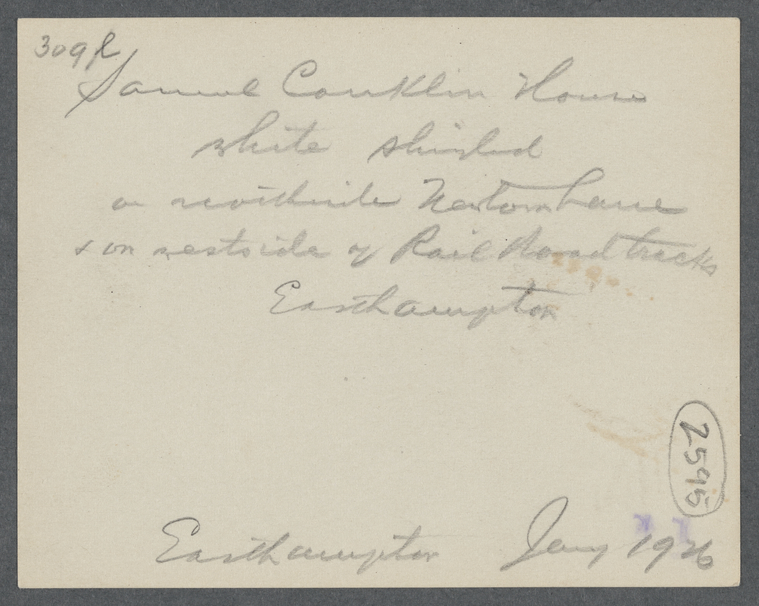 309 R
Samuel Conklin House
white shingled
on northside Newtown Lane
& on westside of Rail Road tracks
Easthampton
2595
Easthampton Jany 1926